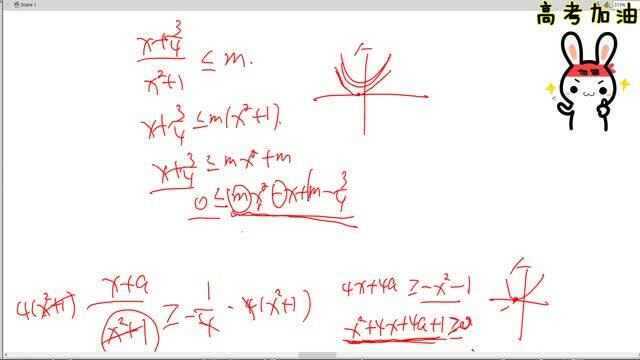 高考加油
(x+3/4)/(x²+1) ≤ m.
x+3/4 ≤ m(x²+1).
x+3/4 ≤ mx²+m
0 ≤ mx²-x+m-3/4
4(x²+1) (x+a)/(x²+1) ≥ -1/4 · 4(x²+1)
4x+4a ≥ -x²-1
x²+4x+4a+1≥0